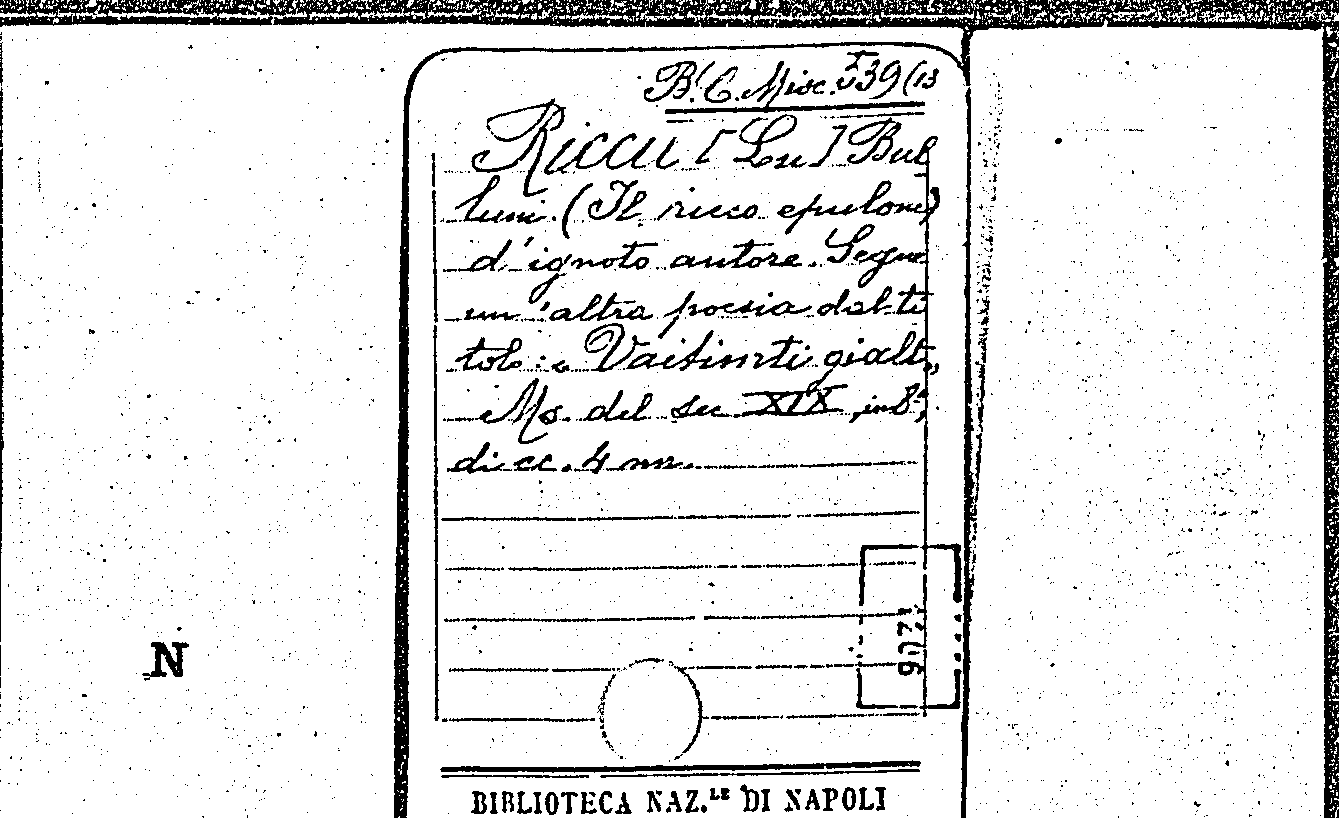 B. C. Misc. 39 (13
Riccu [Lu] Bul
luni. (Il ricco epulone)
d'ignoto autore. Segue
un'altra poesia dal ti
tolo: «
Ms. del sec XIX, in 8°,
di cc. 4 nn.
N
BIBLIOTECA NAZ.LE DI NAPOLI